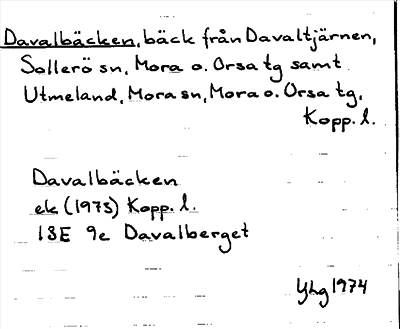 Davalbäcken, bäck från Davaltjärnen,
Sollerö sn, Mora o. Orsa tg samt
Utmeland, Mora sn, Mora o. Orsa tg,
Kopp. l.
Davalbäcken
ek (1973) Kopp. l.
13E 9e Davalberget
Yhg 1974